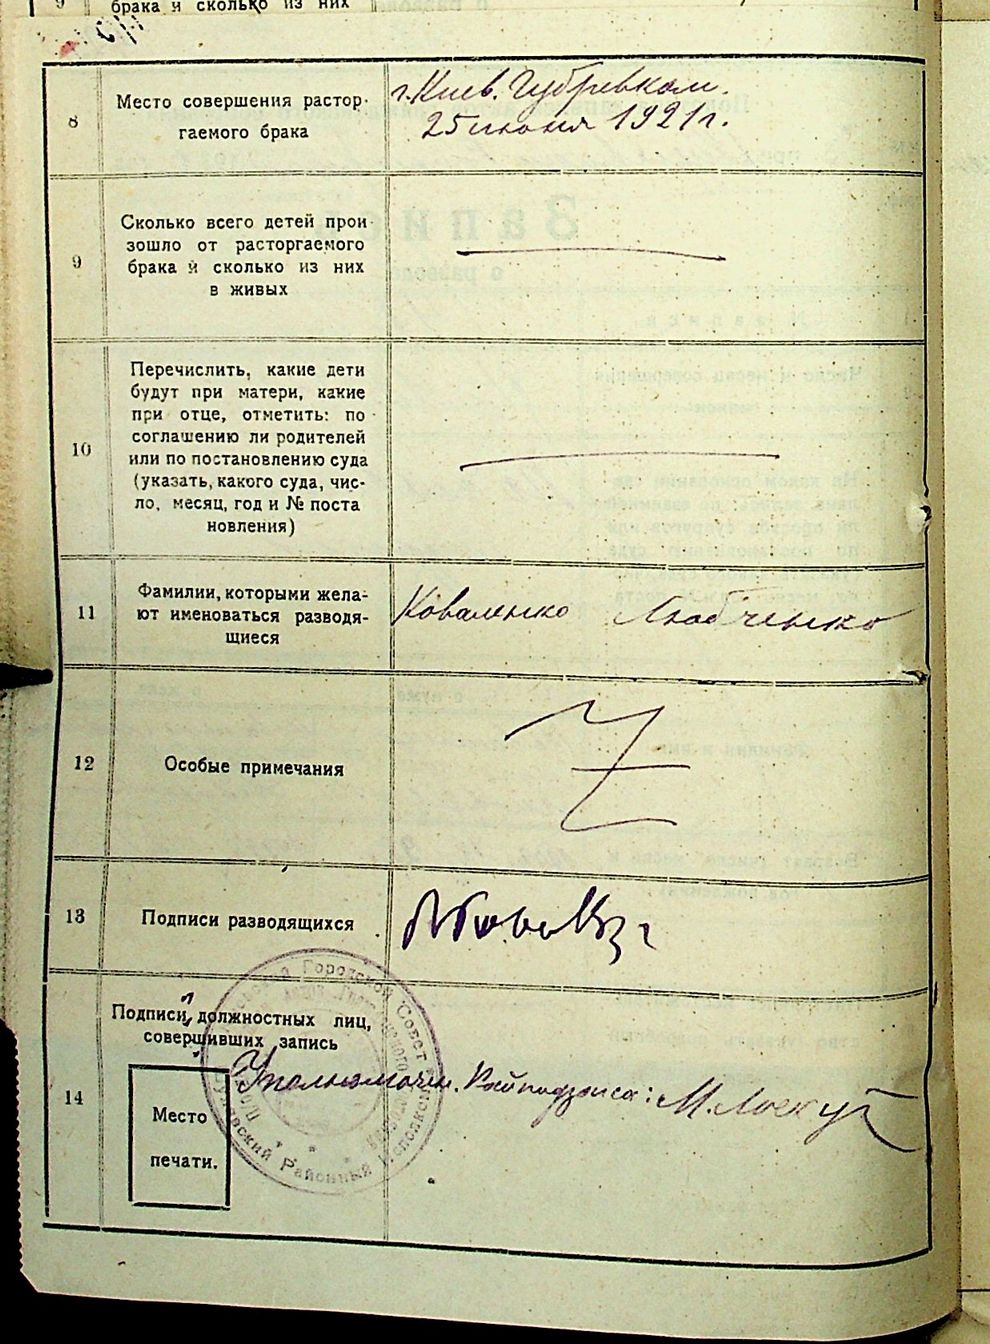 брака и сколько из них
8
Место совершения растор-
гаемого брака
г. Киев. Губревком.
25 июня 1921 г.
9
Сколько всего детей прои
зошло от расторгаемого
брака и сколько из них
в живых
10
Перечислить, какие дети
будут при матери, какие
при отце, отметить: по
соглашению ли родителей
или по постановлению суда
(указать, какого суда, чис-
ло, месяц, год и № поста
новления)
11
Фамилии, которыми жела-
ют именоваться разводя-
щиеся
Коваленко Любченко
12
Особые примечания
Z
13
Подписи разводящихся
14
Подписи должностных лиц,
совершивших запись
Городской Совет
Районный Исполком
Уполномочен. Райподзагса: М.
Место
печати.